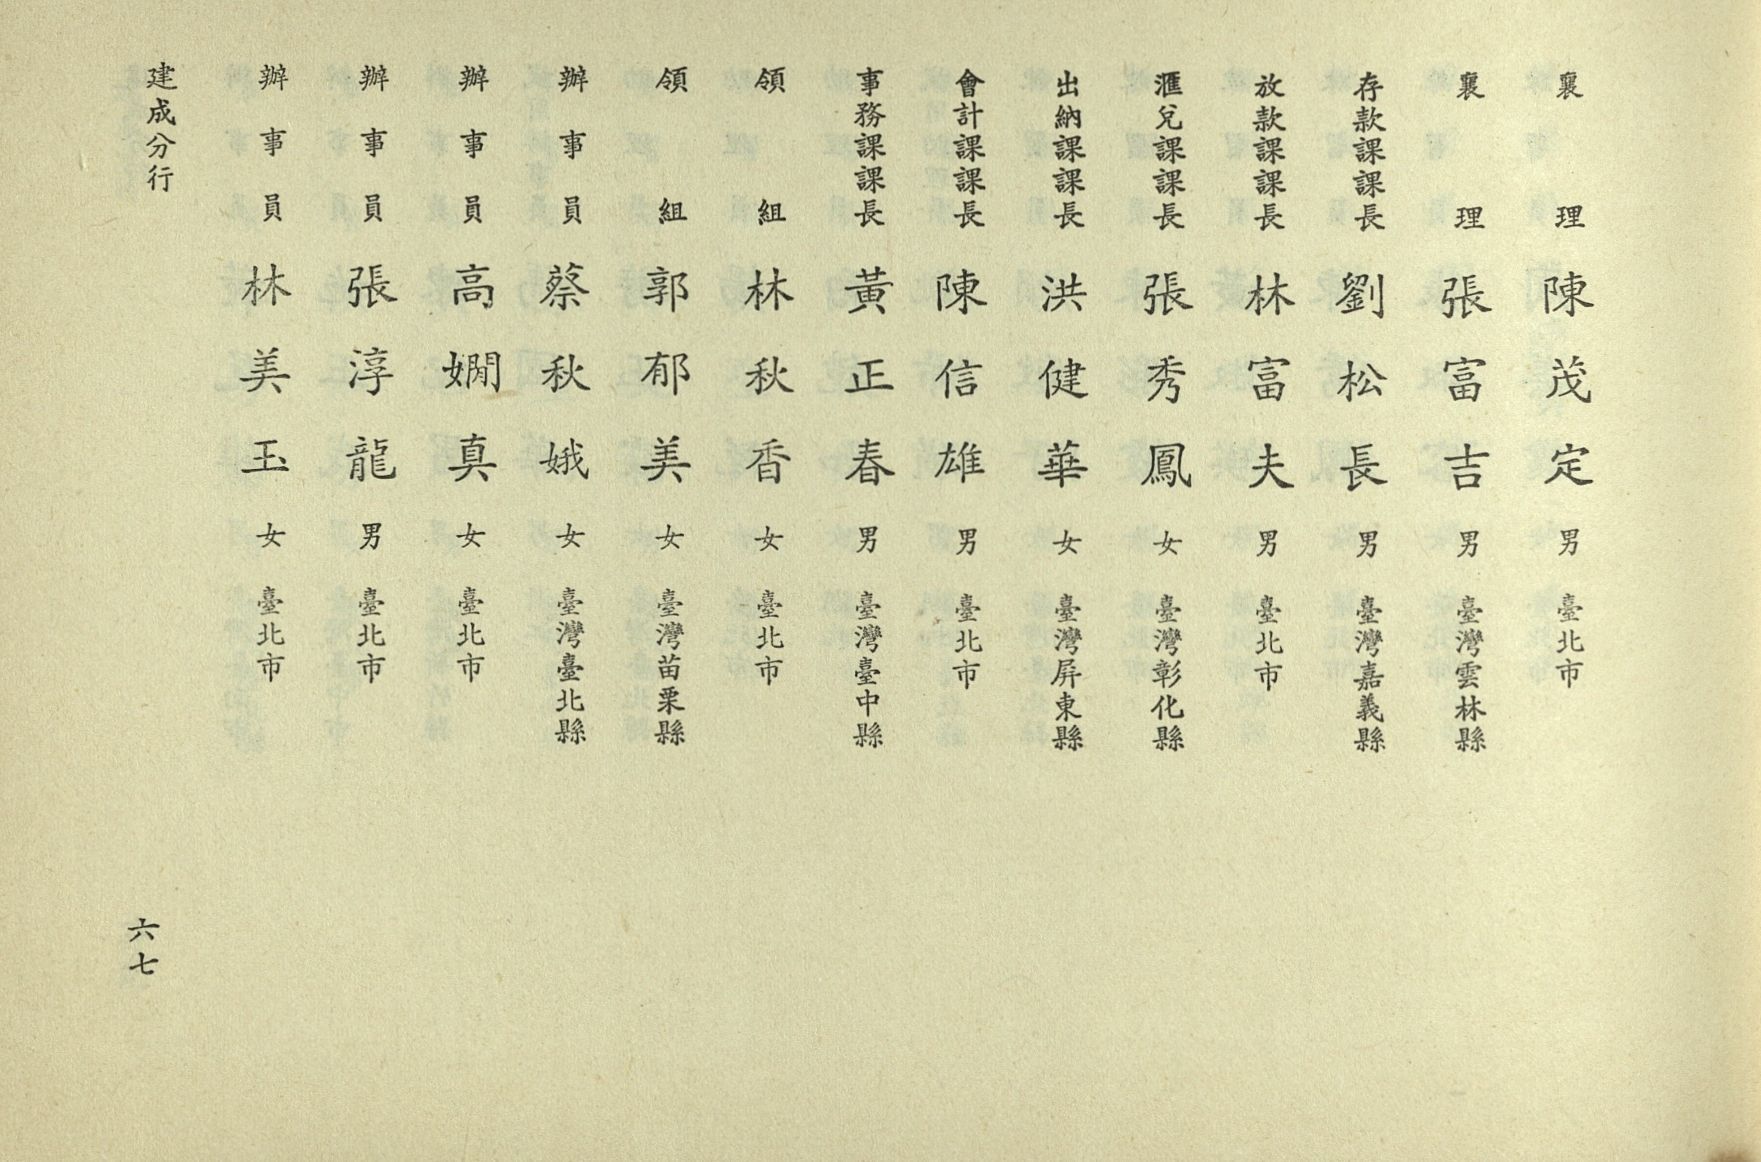 襄理 陳茂定 男 臺北市
襄理 張富吉 男 臺灣雲林縣
存款課課長 劉松長 男 臺灣嘉義縣
放款課課長 林富夫 男 臺北市
滙兌課課長 張秀鳳 女 臺灣彰化縣
出納課課長 洪健華 女 臺灣屏東縣
會計課課長 陳信雄 男 臺北市
事務課課長 黃正春 男 臺灣臺中縣
領組 林秋香 女 臺北市
領組 郭郁美 女 臺灣苗栗縣
辦事員 蔡秋娥 女 臺灣臺北縣
辦事員 高嫻真 女 臺北市
辦事員 張淳龍 男 臺北市
辦事員 林美玉 女 臺北市
建成分行
六七